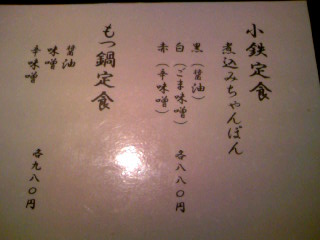 小鉄定食
煮込みちゃんぽん
黒(醤油)
白(ごま味噌)
赤(辛味噌)
各八八〇円
もつ鍋定食
醤油
味噌
辛味噌
各九八〇円